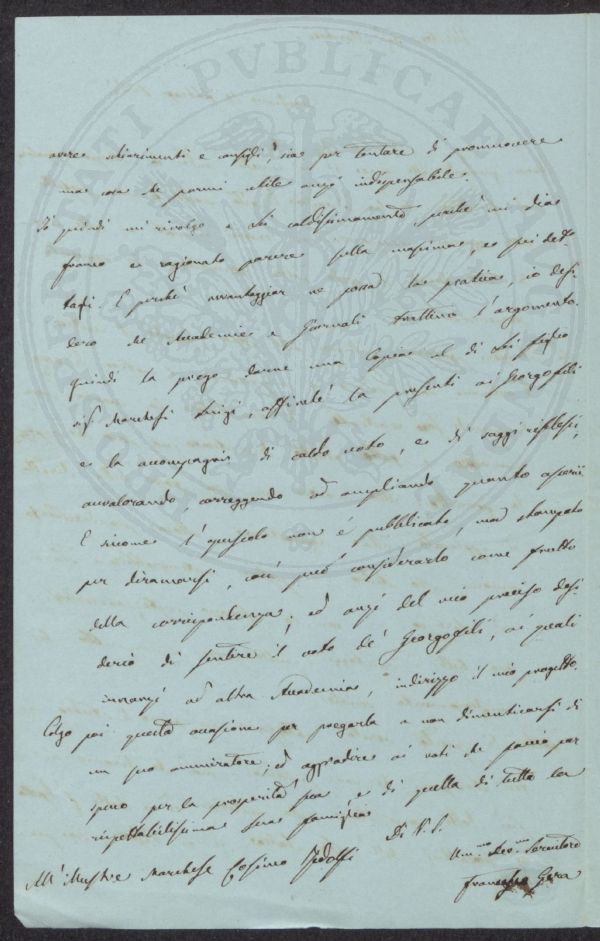 avere schiarimenti e consigli, sia per tentare di promuovere
una cosa che parmi utile anzi indispensabile.
Io quindi mi rivolgo a Lei caldissimamente perchè mi dia
franco e ragionato parere sulla massima, e sui det-
tagli. E perchè avvantaggiar ne possa la pratica, io desi-
dero che Accademie e Giornali trattino l'argomento.
quindi la prego darne una copia al di Lei figlio
sig.r Marchese Luigi, affinchè la presenti ai Georgofili
e la accompagni di caldo voto, e di saggi riflessi,
avvalorando, correggendo ed ampliando quanto
E siccome l'opuscolo non è pubblicato, ma stampato
per diramarsi, così può considerarlo come frutto
della corrispondenza, ed anzi del mio preciso desi-
derio di sentire il voto de' Georgofili, ai quali
innanzi ad altra Accademia, indirizzo il mio progetto.
Colgo poi questa occasione per pregarla a non dimenticarsi di
un suo ammiratore, ed aggradire ai voti che faccio
per la prosperità sua e di quella di tutta la
rispettabilissima sua famiglia
Di V. S.
All' Illustre Marchese Cosimo Ridolfi
Um.mo Dev.mo Servitore
Francesco Gera
TRO PUBLICAE